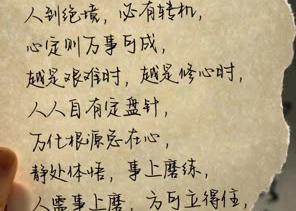 人到绝境，必有转机，
心定则万事可成，
越是艰难时，越是修心时，
人人自有定盘针，
万化根源总在心，
静处体悟，事上磨练，
人需事上磨，方可立得住，